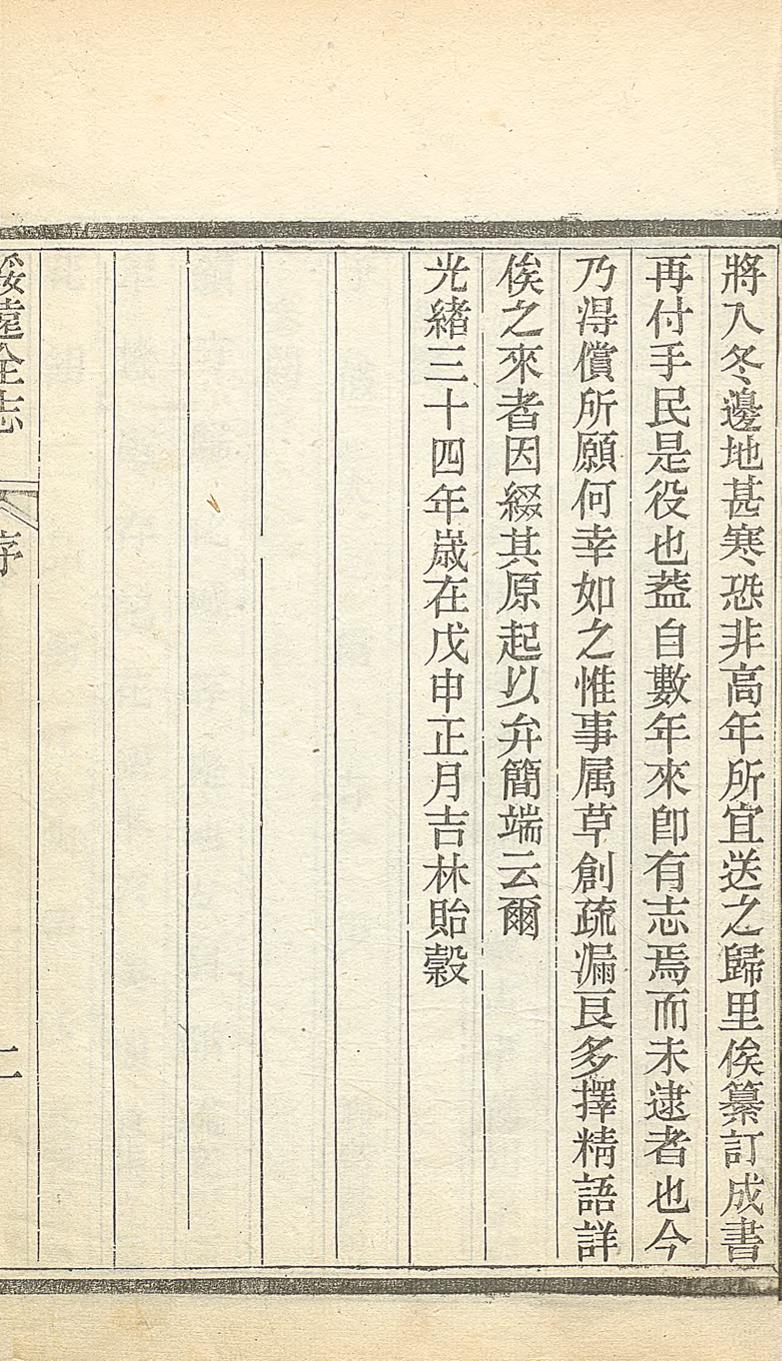 將入冬邊地甚寒恐非高年所宜送之歸里俟纂訂成書
再付手民是役也葢自數年來卽有志焉而未逮者也今
乃得償所願何幸如之惟事属草創疏漏良多擇精語詳
俟之來者因綴其原起以弁簡端云爾
光緒三十四年嵗在戊申正月吉林貽穀
綏遠全志
序
二